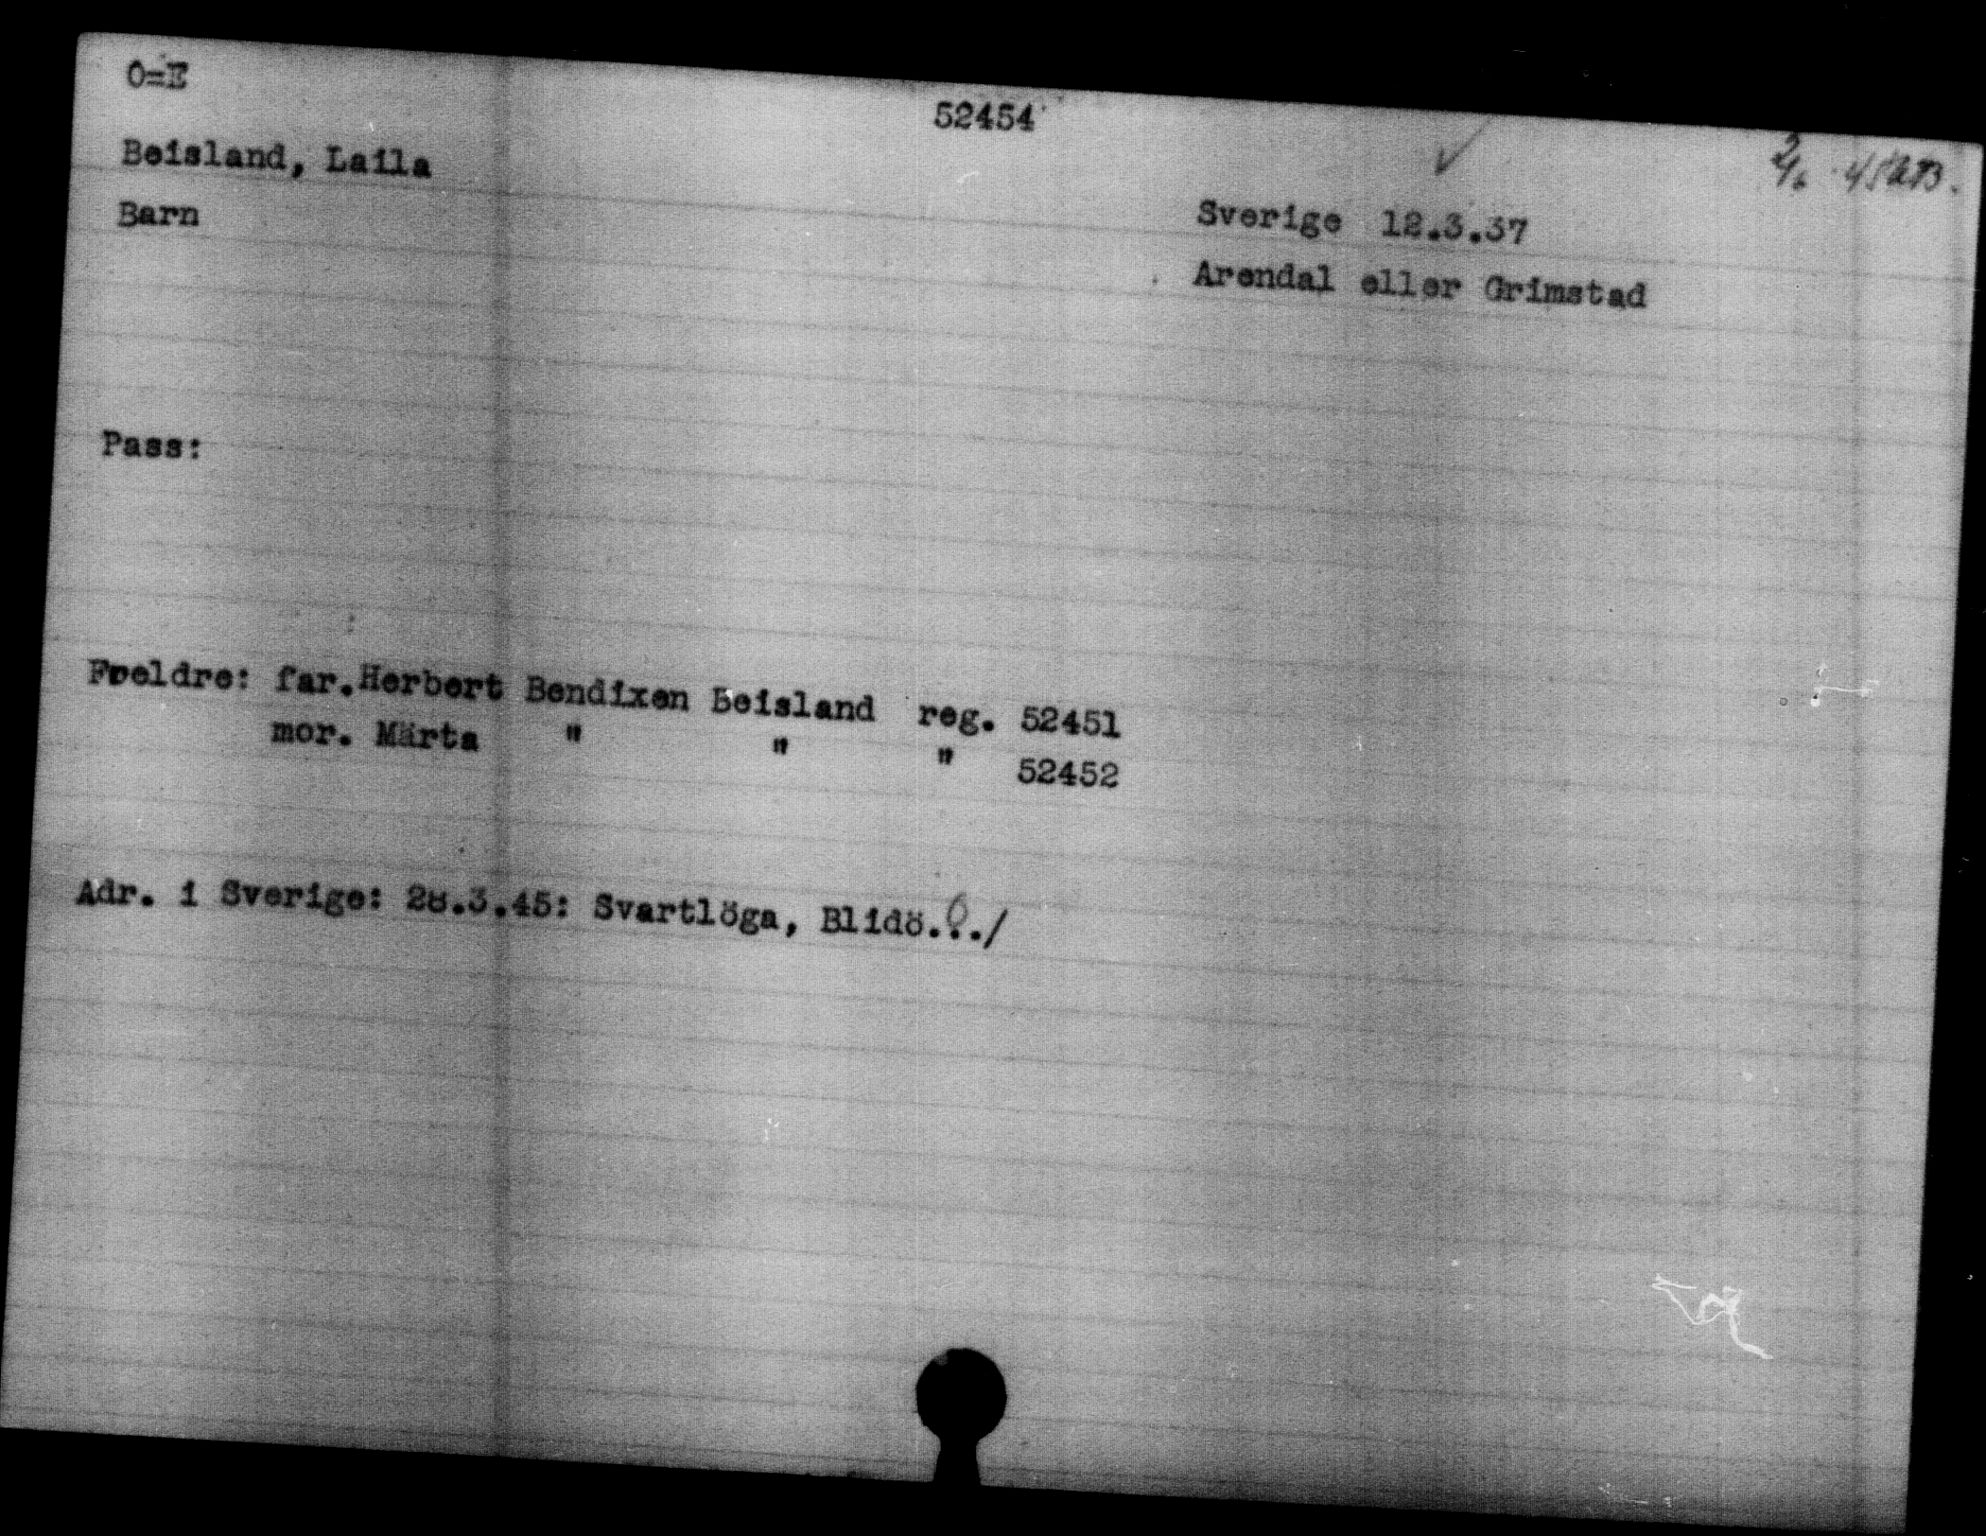 O=E
52454
2/6 45
Beisland, Laila
Barn
Sverige 12.3.37
Arendal eller Grimstad
Pass:
Foeldre: far.Herbert Bendixen Beisland reg. 52451
mor. Märta " " " 52452
Adr. i Sverige: 28.3.45: Svartlöga, Blidö.../